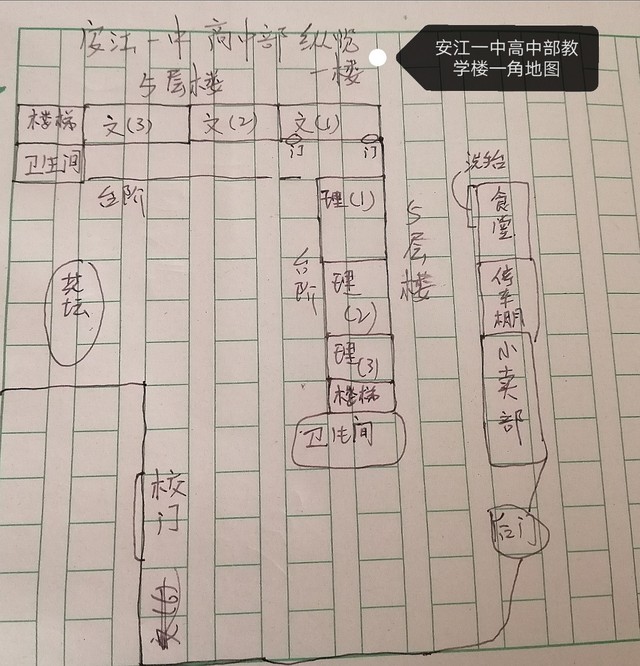 安江一中高中部纵览
一楼
5层楼
安江一中高中部教
学楼一角地图
楼梯
文(3)
文(2)
文(1)
门
门
卫生间
台阶
理(1)
台阶
理
(2)
理
(3)
楼梯
卫生间
5层楼
洗台
食堂
停车棚
小卖部
花坛
校门
后门